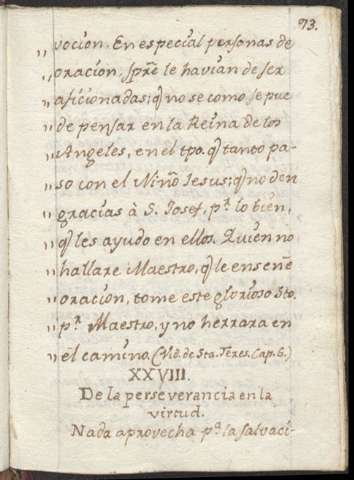 73.
„ vocion. En especial personas de
„ oracion, spre le havian de ser
„ aficionadas; q no se como se pue
„ de pensar en la Reina de los
„ Angeles, en el tpo. q tanto pa-
„ so con el Niño Jesus; q no den
„ gracias à S. Josef, pr. lo bien,
„ q les ayudo en ellos. Quien no
„ hallare Maestro, q le enseñe
„ oracion, tome este glorioso Sto.
„ pr. Maestro, y no herrara en
„ el camino. (Vid. de Sta. Teres. Cap. 6.)
XXVIII.
De la perseverancia en la
virtud.
Nada aprovecha pa. la salvaci-